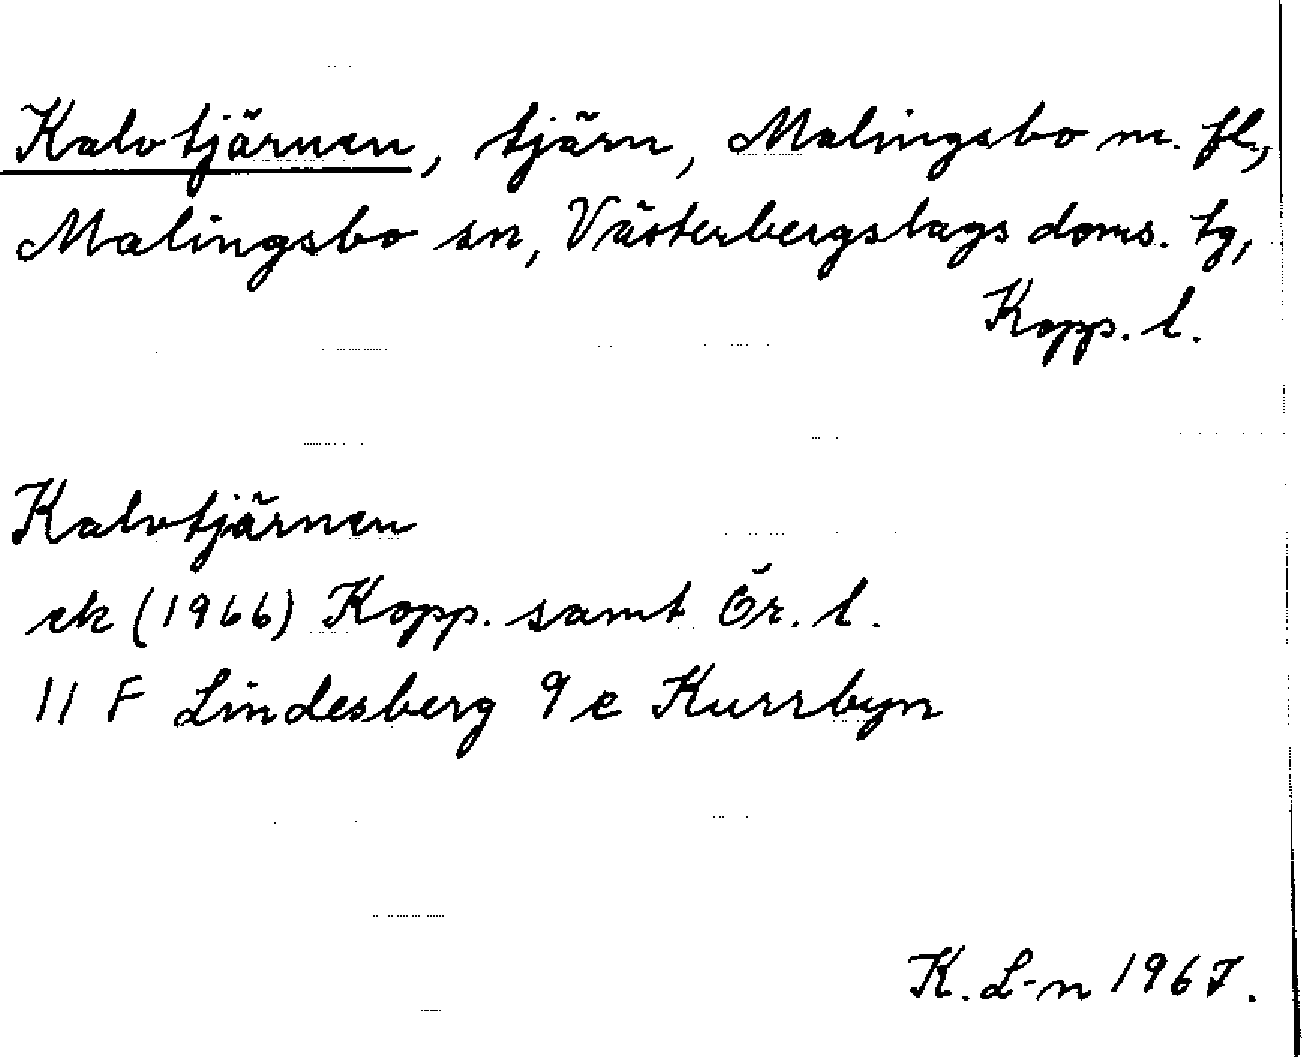 Kalvtjärnen, tjärn, Malingsbo m. fl.,
Malingsbo sn, Västerbergslags doms. tg,
Kopp. l.
Kalvtjärnen
ek (1966) Kopp. samt Ör. l.
11 F Lindesberg 9 e Kurrbyn
K. L-n 1967.